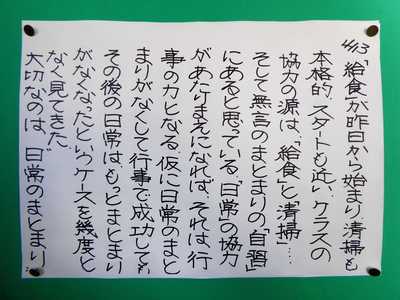 4/13「給食」が昨日から始まり、清掃も
本格的スタートも近い。クラスの
協力の源は、「給食」と「清掃」…
そして無言のまとまりの「自習」
にあると思っている。「日常」の協力
があたりまえになれば、それは行
事の力となる。仮に日常のまと
まりがなくして行事で成功しても
その後の日常は、もっとまとまり
がなくなったというケースを幾度と
なく見てきた
大切なのは、日常のまとまり